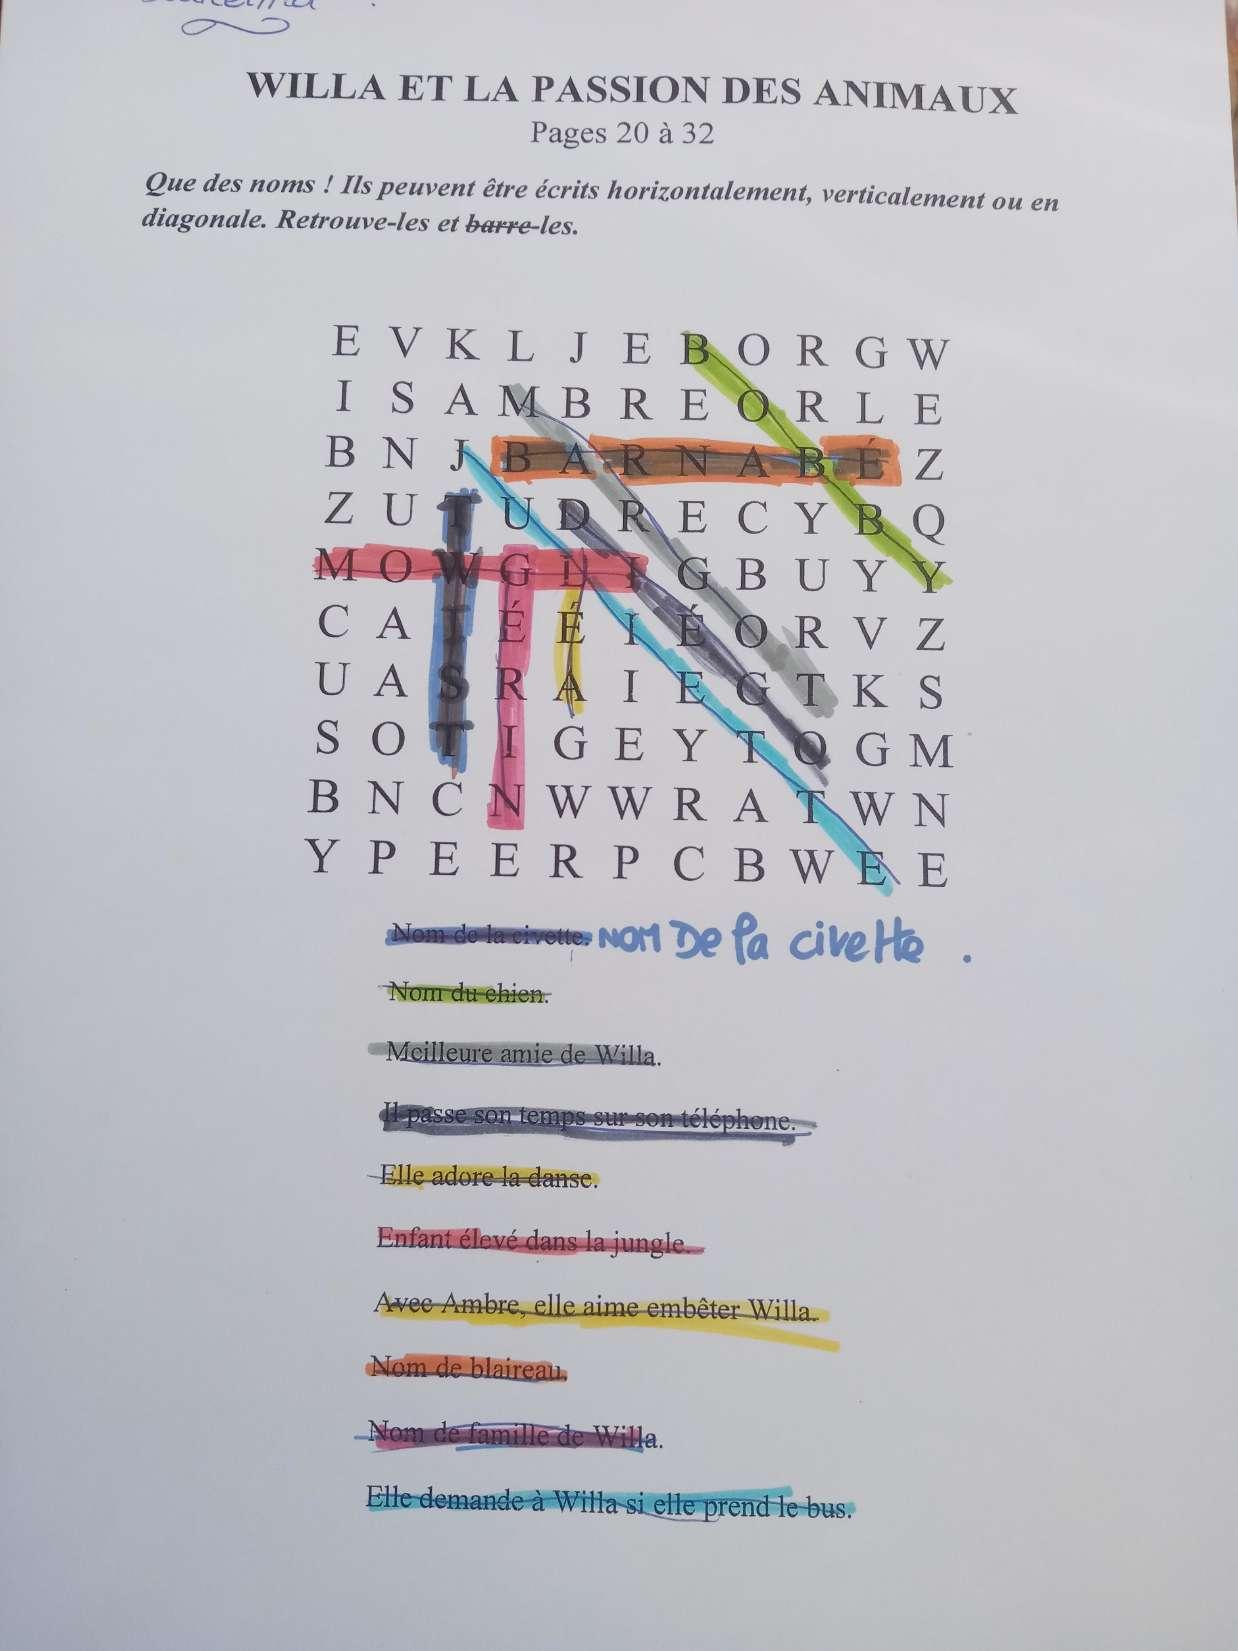 WILLA ET LA PASSION DES ANIMAUX
Pages 20 à 32
Que des noms ! Ils peuvent être écrits horizontalement, verticalement ou en
diagonale. Retrouve-les et barre-les.
E V K L J E B O R G W
I S A M B R E O R L E
B N J B A R N A B É Z
Z U T U D R E C Y B Q
M O W G L I G B U Y Y
C A I É É I É O R V Z
U A S R A I E G T K S
S O T I G E Y T O G M
B N C N W W R A T W N
Y P E E R P C B W E E
Nom de la civette. NOM De la civette .
Nom du chien.
Meilleure amie de Willa.
Il passe son temps sur son téléphone.
Elle adore la danse.
Enfant élevé dans la jungle.
Avec Ambre, elle aime embêter Willa.
Nom de blaireau.
Nom de famille de Willa.
Elle demande à Willa si elle prend le bus.